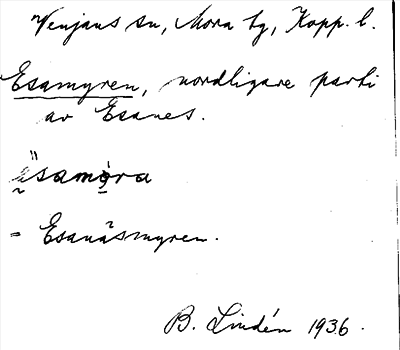 Venjans sn, Mora tg, Kopp. l.
Esamyren, nordligare parti
av Esanes.
= Esanäsmyren.
B. Lindén 1936.